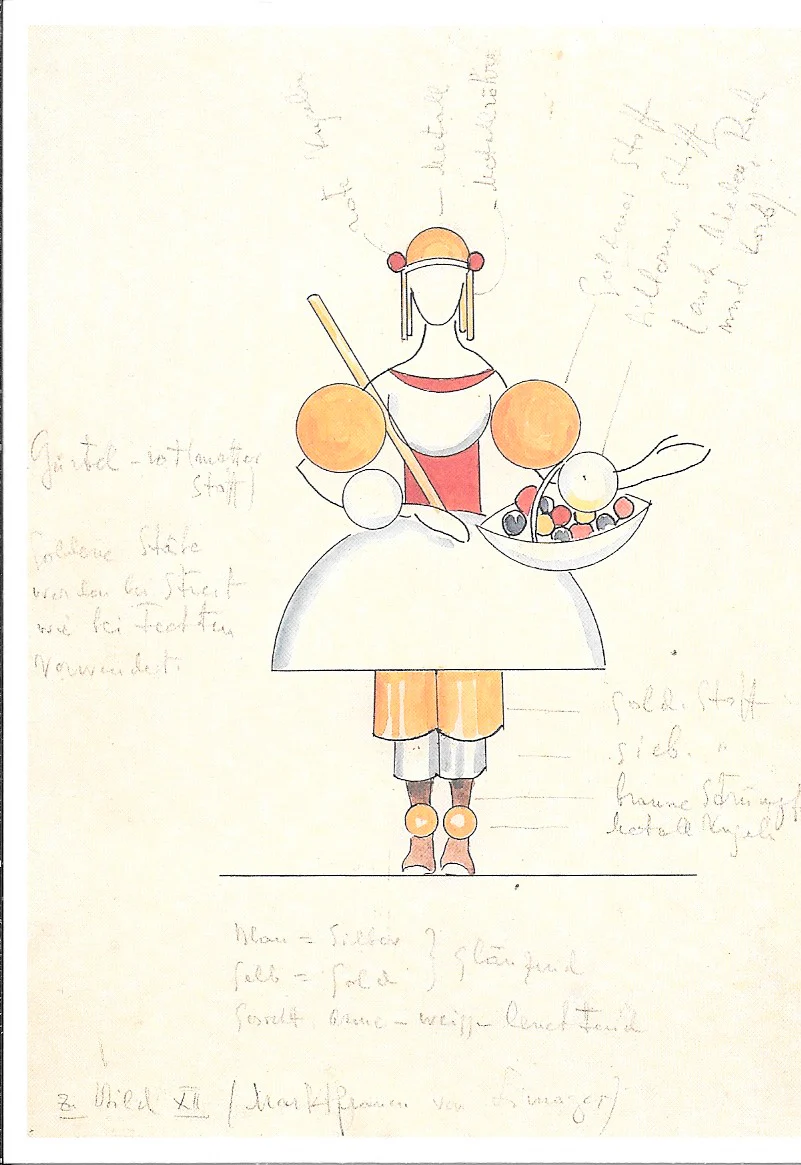 rote Kugeln
Metall
Metallröhre
Goldener Stoff
silberner Stoff
(auch Mieder, Rock
und Korb)
Gürtel – rot (matter
Stoff)
Goldene Stäbe
werden bei Streit
wie bei Fechten
verwendet.
Gold. Stoff
silb. "
braune Strümpfe
Metall Kugeln
Blau = Silber
Gelb = Gold } glänzend
Gesicht Arme – weiss – leuchtend
z. Bild XII (Marktfrauen von Limoges)